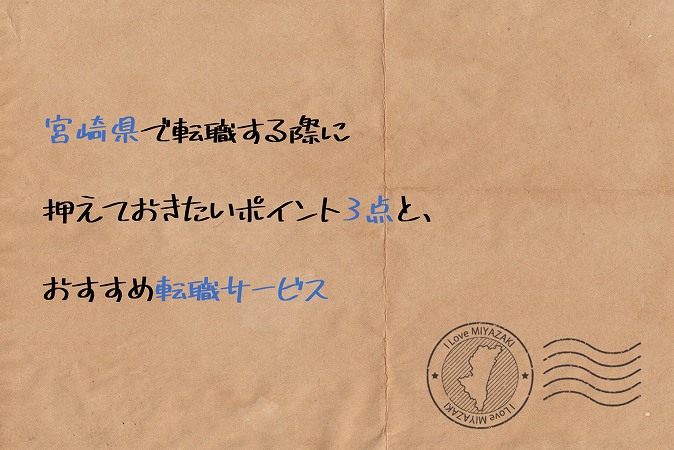 宮崎県で転職する際に
押えておきたいポイント3点と、
おすすめ転職サービス
I Love MIYAZAKI
I Love MIYAZAKI